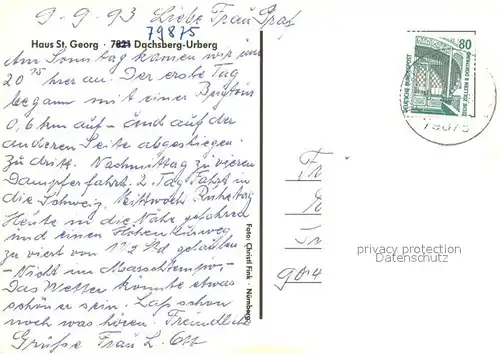 9-9-93 Liebe Frau Graf
79875
Haus St. Georg · 7821 Dachsberg-Urberg
Am Sonntag kamen wir um
20 15 hier an. Der erste Tag
begann mit einer Bergtour
0,6 km auf- und auf der
anderen Seite abgestiegen.
Zu dritt. Nachmittag zu vieren
Dampferfahrt. 2. Tag Fahrt in
die Schweiz. Mittwoch Ruhetag
Heute in die Nähe gefahren
und einen Höhenkurweg
zu viert von 1 1/2 Std gelaufen
-Nicht im Marschtempo-
Das Wetter könnte etwas
schöner sein. Laß schon
noch was hören. Freundliche
Grüße Frau L. Ott
Foto: Christl Fink · Nürnberg
80
DEUTSCHE BUNDESPOST
79875
privacy protection
Datenschutz